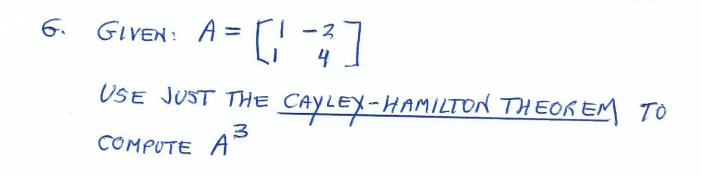 6. GIVEN: A = [1 -2
1 4]
USE JUST THE CAYLEY-HAMILTON THEOREM TO
COMPUTE A³